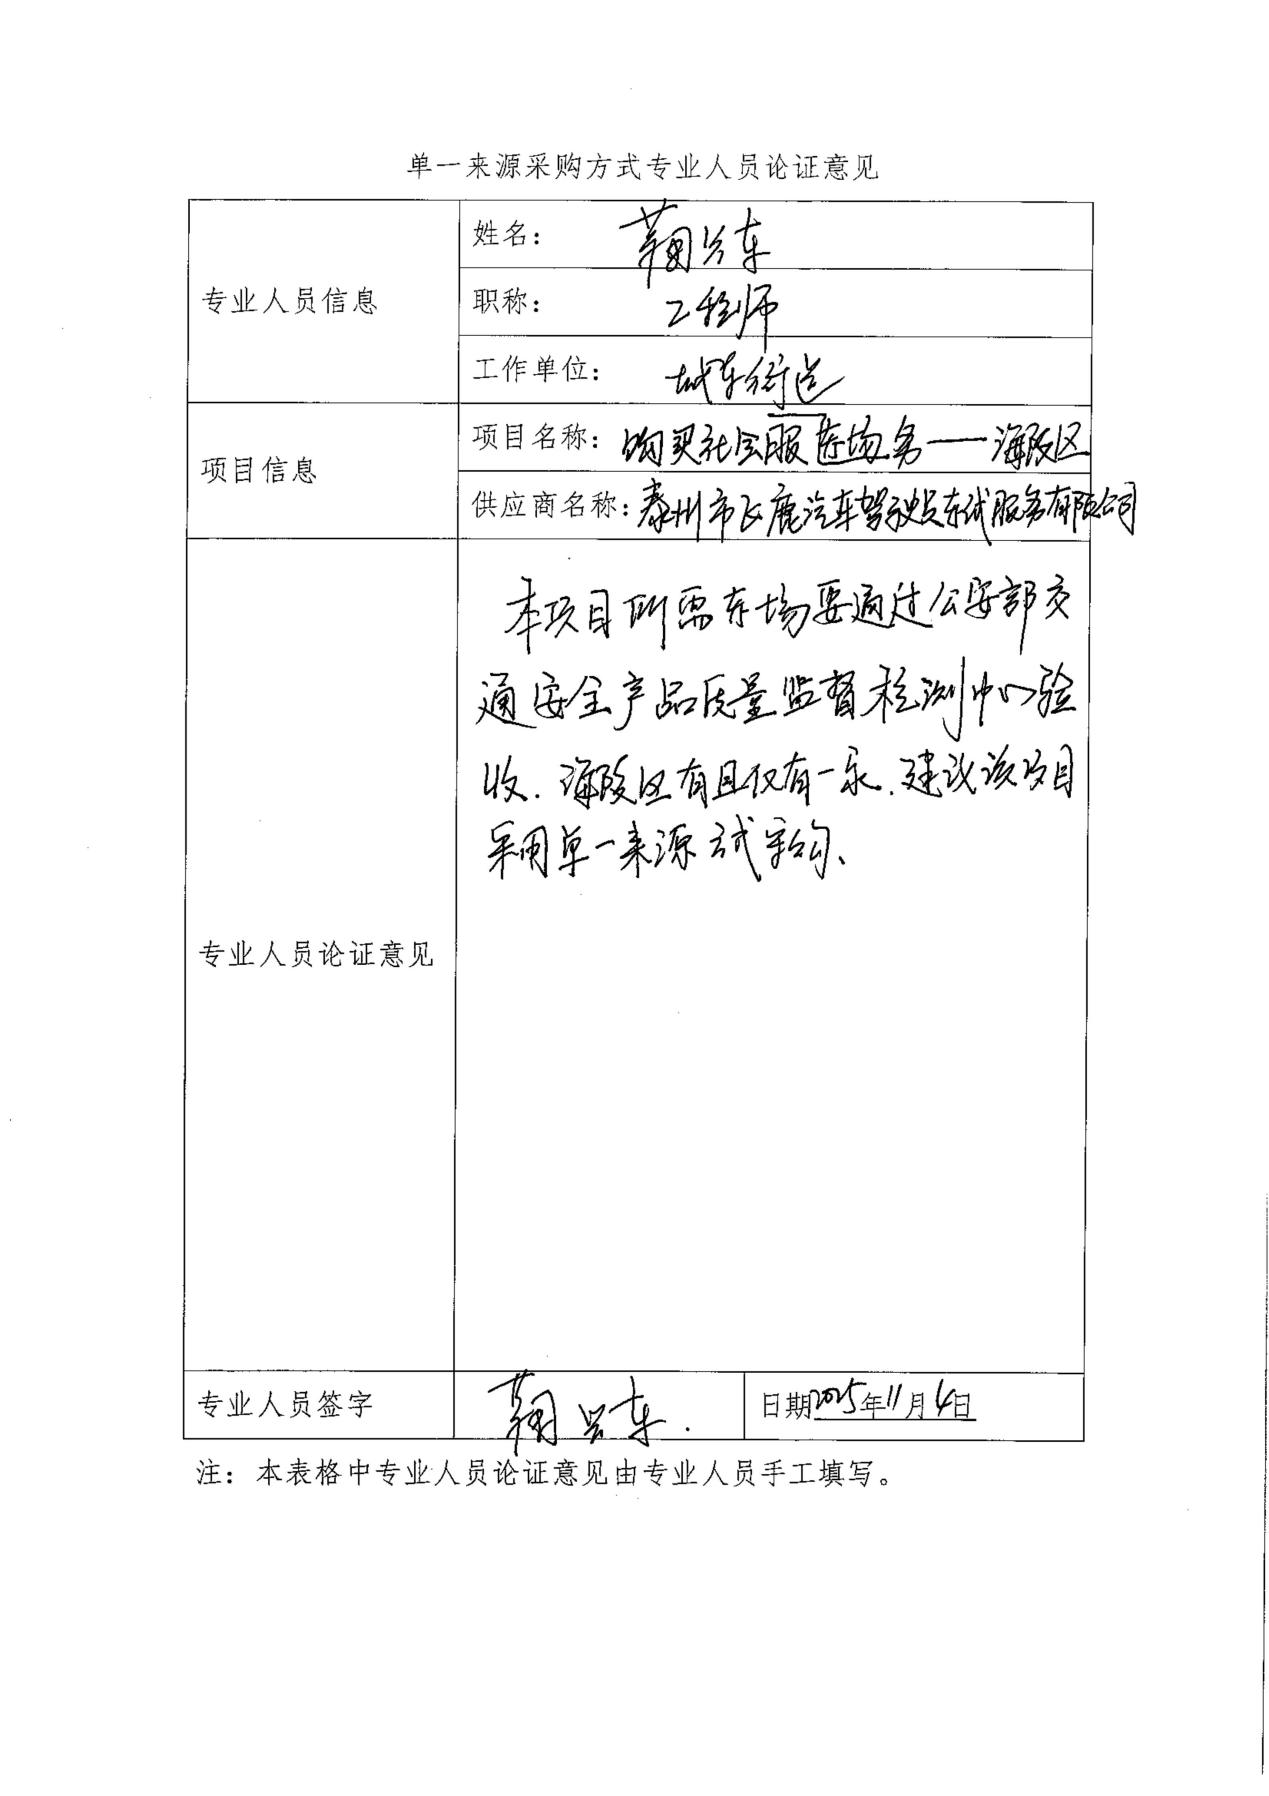 单一来源采购方式专业人员论证意见
专业人员信息
姓名：
职称： 工程师
工作单位： 城东街道
项目信息
项目名称： 购买社会服考场务——海陵区
供应商名称：泰州市飞鹿汽车驾驶员考试服务有限公司
专业人员论证意见
本项目所需考场要通过公安部交
通安全产品质量监督检测中心验
收.海陵区有且仅有一家.建议该项目
采用单一来源方式采购、
专业人员签字
日期2025年11月4日
注：本表格中专业人员论证意见由专业人员手工填写。